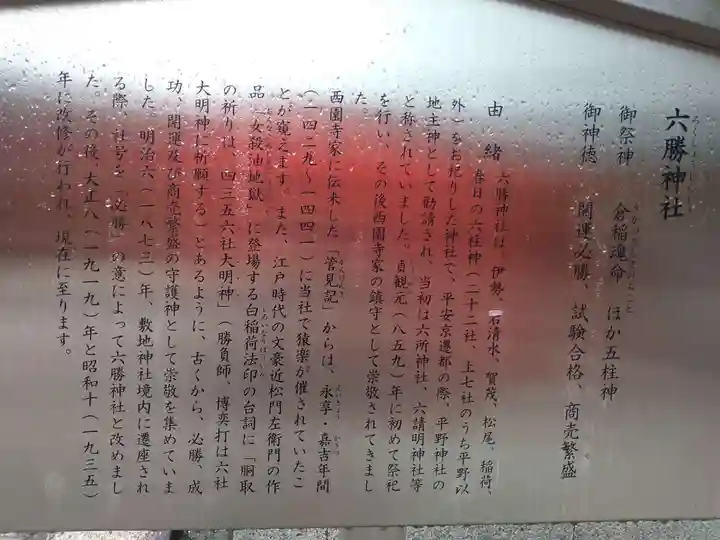 六勝神社
ろくしょうじんじゃ
御祭神　倉稲魂命　ほか五柱神
御神徳　開運必勝、試験合格、商売繁盛
由緒　六勝神社は、伊勢、石清水、賀茂、松尾、稲荷、
春日の六柱神（二十二社、上七社のうち平野以
外）をお祀りした神社で、平安京遷都の際、平野神社の
地主神として勧請され、当初は六所神社、六請明神社等
と称されていました。貞観元（八五九）年に初めて祭祀
を行い、その後西園寺家の鎮守として崇敬されてきまし
た。
西園寺家に伝来した「管見記」からは、永享・嘉吉年間
（一四二九〜一四四一）に当社で猿楽が催されていたこ
とが窺えます。また、江戸時代の文豪近松門左衛門の作
品「女殺油地獄」に登場する白稲荷法印の台詞に「胴取
の祈りは、四三五六社大明神」（勝負師、博奕打は六社
大明神に祈願する）とあるように、古くから、必勝、成
功、開運及び商売繁盛の守護神として崇敬を集めていま
した。明治六（一八七三）年、敷地神社境内に遷座され
る際、社号を「必勝」の意によって六勝神社と改めまし
た。その後、大正八（一九一九）年と昭和十（一九三五）
年に改修が行われ、現在に至ります。